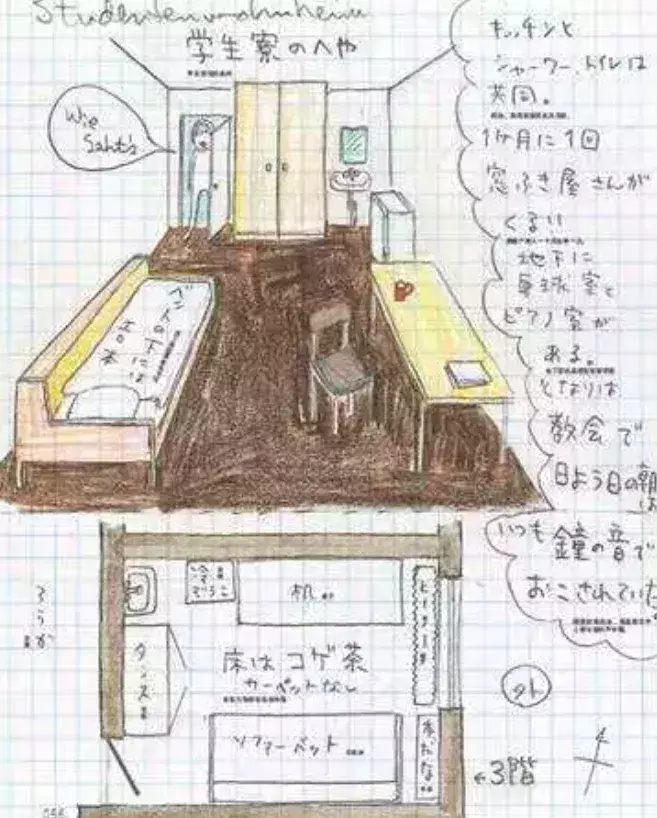 Studentenwohnheim
学生寮のへや
Wie
Geht's
キッチンと
シャワー、トイレは
共同。
1ヶ月に1回
窓ふき屋さんが
くるい
地下に
卓球室と
ピアノ室が
ある。
となりは
教会で
日よう日の朝は
いつも鐘の音で
おこされていた
ベットの下には
エロ本
ろうか
冷ぞうこ
机
ヒーター
タンス
床はコゲ茶
カーペットなし
ソファーベット
本だな
外
←3階